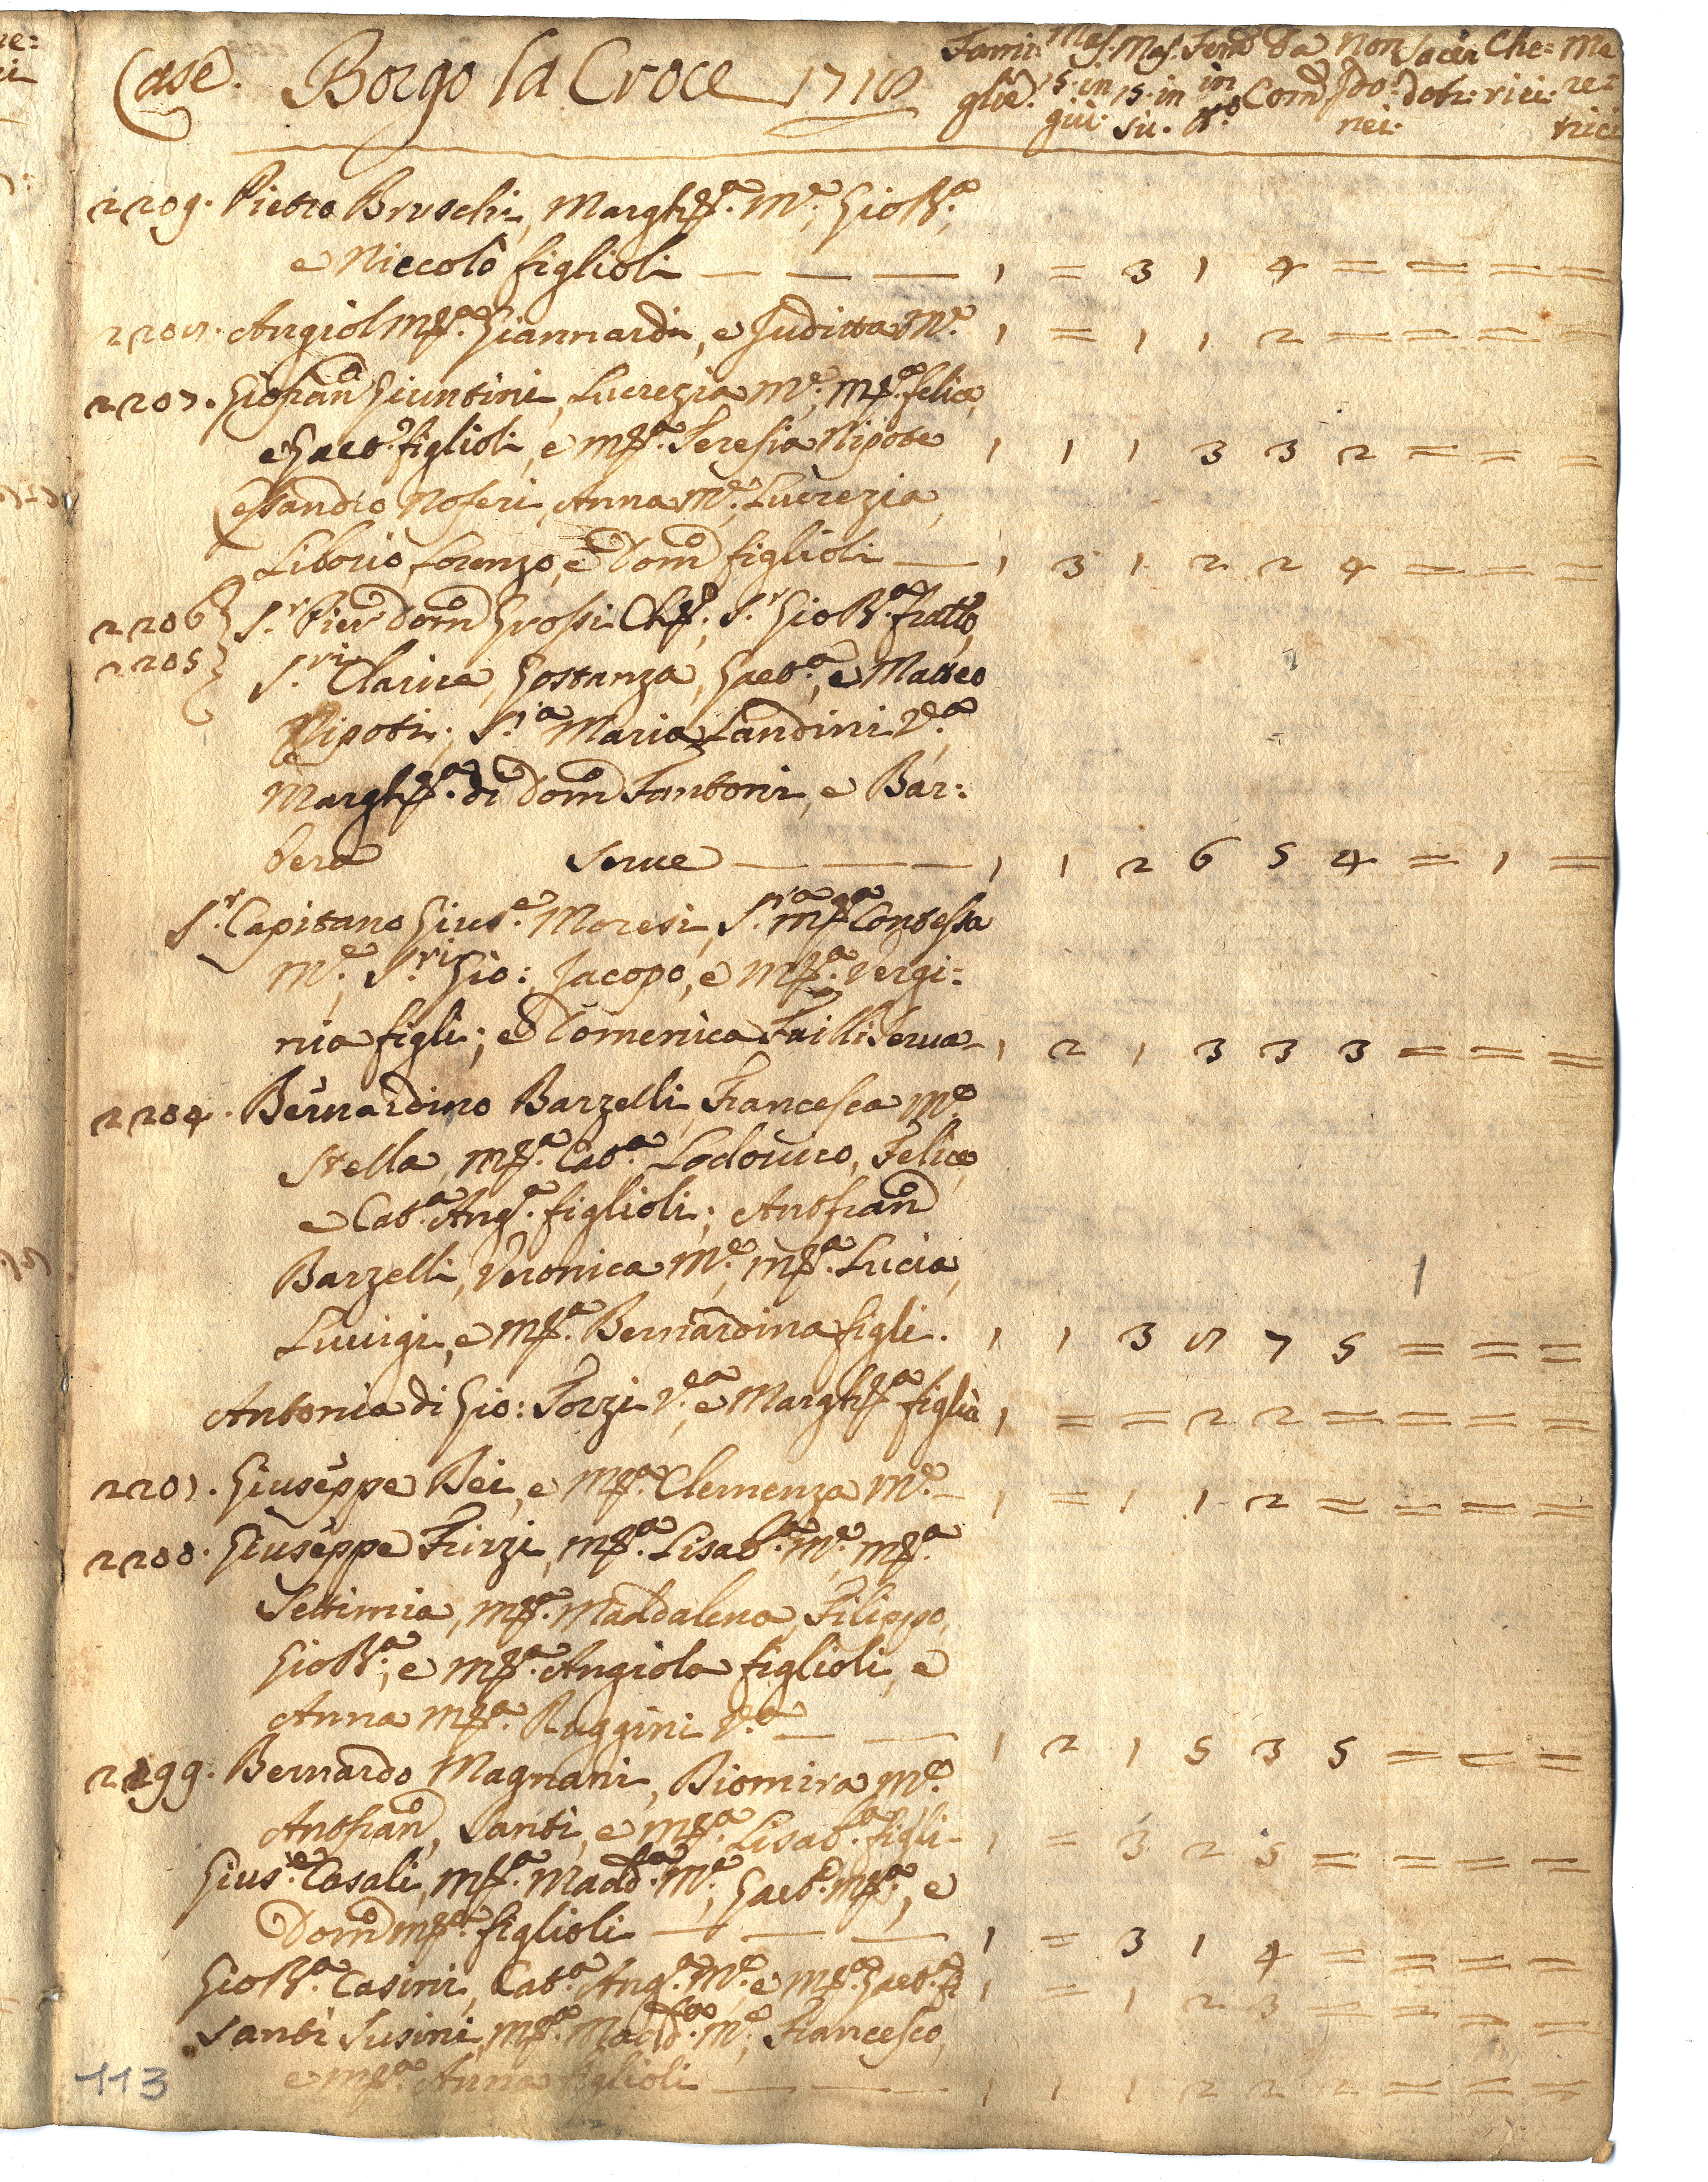 Case. Borgo la Croce 1718 Fami: Mas. Mas. Fem.e Da Non Sacer Che: Me
glie. 15. in 15. in in Com. Ido: doti: rici: re=
giù. sù. N.o nei. trici
2209. Pietro Bruschi, Margh.ta M.e, Gio B.a,
e Niccolò figlioli — — — 1 = 3 1 4 = = = =
2208. Angiol M.a Giannardi, e Juditta M.e 1 = 1 1 2 = = = =
2207. Giofran.co Giuntini, Lucrezia M.e, M.a felice,
e Gaet.o figlioli, e M.a Teresia Nipote 1 1 1 3 3 2 = = =
Noferi, Anna M.e, Lucrezia,
Liborio, Lorenzo, e Dom.co figlioli — 1 3 1 2 2 4 = = =
2206 } S.r Pier Dom.co Grossi Ch.o, S.r Gio B.a fratto,
2205 } S.ri Clarice, Gostanza, Gaet.a, e Matteo
Nipoti; S.ra Maria Landini V.a
Margh.ta di Dom.co Fantoni, e Bar:
bera Serue — — — 1 1 2 6 5 4 = 1 =
S.r Capitano Gius.e Moresi, S.ra M.a Contessa
M.e, S.ri Gio:, Jacopo, e M.a Vergi=
nia figli; e Domenica Failli Serua - 1 2 1 3 3 3 = = =
2204. Bernardino Barzelli, Francesca M.e
Stella, M.a Cat.a Lodouico, Felice,
e Cat.a Ang.a figlioli; Antfran.co
Barzelli, Veronica M.e, M.a Lucia,
Luuigi, e M.a Bernardina figli. 1 1 3 8 7 5 = = =
Antonia di Gio: Forzi V.a e Margh.ta figlia 1 = = 2 2 = = = =
2201. Giuseppe Bei, e M.a Clemenza M.e — 1 = 1 1 2 = = = =
2200. Giuseppe Firzi, M.a Lisab.a M.e, M.a
Settimia, M.a Maddalena, Filippo,
Gio B.a, e M.a Angiola figlioli, e
Anna M.a Ruggini V.a — — 1 2 1 5 3 5 = = =
2199. Bernardo Magnani, Biomira M.e
Antfran.co, Santi, e M.a Lisab.a figli — 1 = 3 2 5 = = = =
Gius.e Casali, M.a Madd.a M.e, Gaet.o M.a, e
Dom.co M.a figlioli — — — 1 = 3 1 4 = = = =
Gio B.a Casini, Cat.a Ang.a M.e e M.a Gaet.a fi 1 = 1 2 3 = = = =
Santi Susini, M.a Madd.a M.e, Francesco,
e M.a Anna figlioli — — — 1 1 1 2 2 2 = = =
113